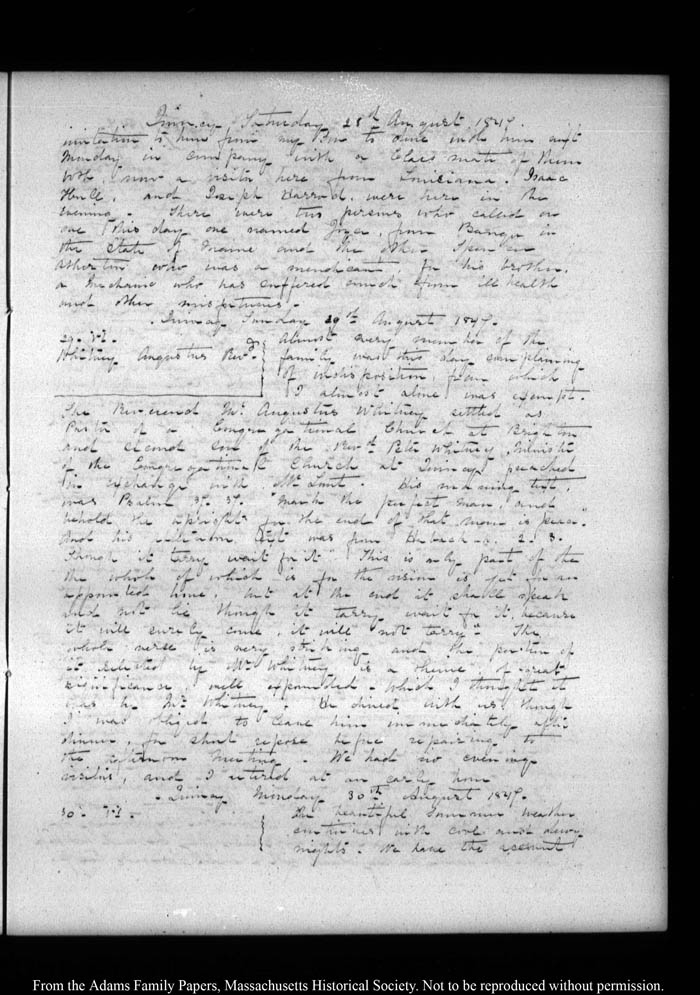 Quincy Saturday 28th August 1847.
invitation to him from my Son to dine with him next
Monday in company with a Class mate of them
both, now a visitor here from Louisiana. Isaac
Hull, and Joseph Harrod, were here in the
evening. There were two persons who called on
me this day one named Joyce, from Bangor in
the State of Maine and the other Spencer
Atherton who was a mendicant for his brother,
a Mechanic who has suffered much from ill health
and other misfortunes.
Quincy Sunday 29th August 1847.
29. VI. Almost every member of the
Whitney Augustus Revd. family was this day complaining
of indisposition, from which
I almost alone was exempt.
The Reverend Mr. Augustus Whitney settled as
Pastor of a Congregational Church at Brighton
and second Son of the Revd. Peter Whitney, Minister
of the Congregational Church at Quincy preached
in exchange with Mr. Lunt. His morning text,
was Psalm 37. 37. "Mark the perfect man, and
behold the upright for the end of that man is peace."
And his afternoon text was from Haback. 2. 3.
"Though it tarry wait for it" This is only part of the
the whole of which is for the vision is yet for an
appointed time, but at the end it shall speak
and not lie though it tarry, wait for it, because
it will surely come, it will not tarry." The
whole verse is very striking and the portion of
it selected by Mr. Whitney is a theme of great
significance, well expounded. which I thought it
was by Mr. Whitney. He dined with us though
I was obliged to leave him immediately after
dinner, for short repose before repairing to
the afternoon Meeting. We had no evening
visitors, and I retired at an early hour
Quincy Monday 30th August 1847.
30. VI. The beautiful Summer weather
continues with cool and dewy
nights. We have the account
From the Adams Family Papers, Massachusetts Historical Society. Not to be reproduced without permission.